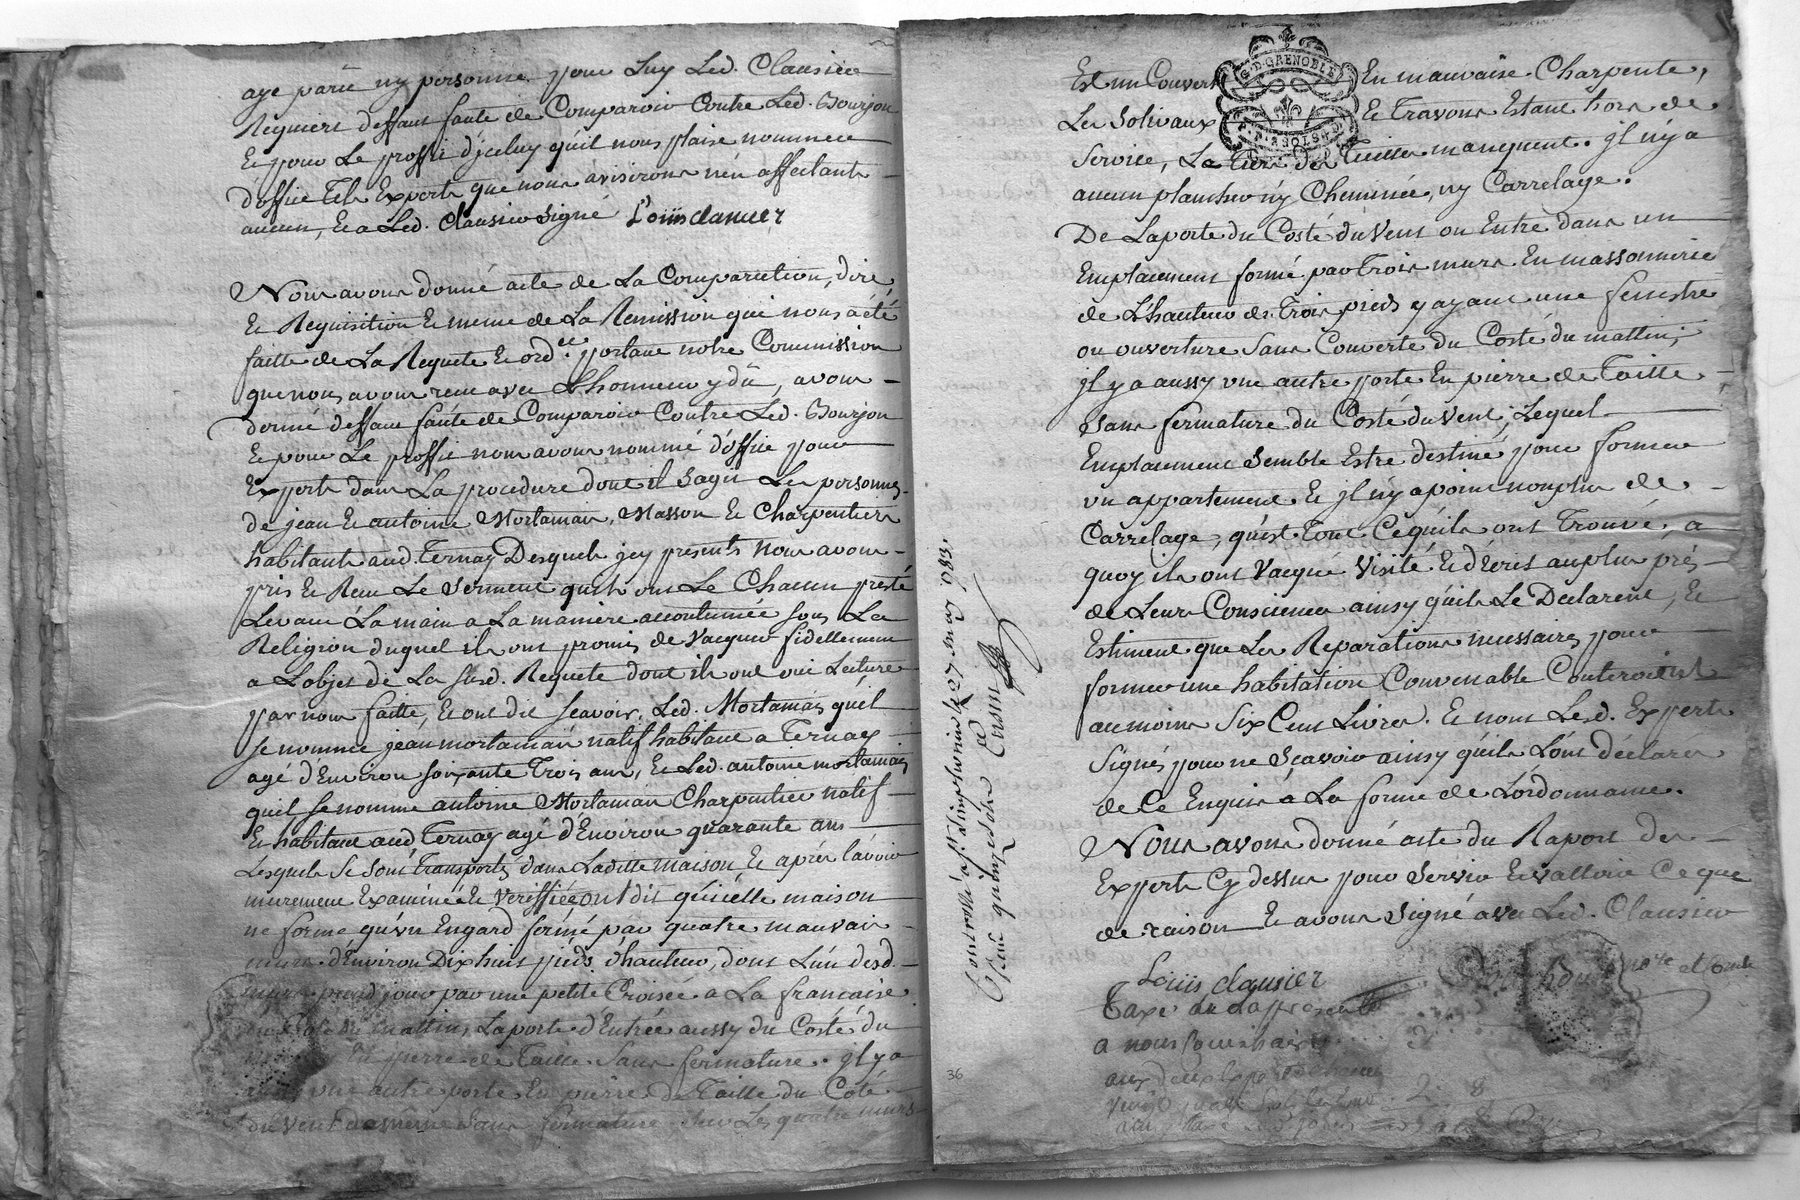 aye parû ny personne pour Luy Led. Clausier
Requiert deffaut faute de Comparoir Contre Led. Bourjon
Et pour Le proffit d'jceluy qu'il nous plaise nommer
d'office Tels Experts que nous avisirons n'en affectant
aucun, Et a Led. Clausier signé Loüis clausier
Nous avons donné acte de La Comparution, dire
Et Requisition Et meme de La Remission qui nous a été
faitte de La Requete Et ord.ce portant notre Commission
que nous avons receu avec L'honneur y dû, avons
donné deffaut faute de Comparoir Contre Led. Bourjon
Et pour Le proffit nous avons nommé d'office pour
Experts dans La procedure dont il s'agit Les personnes
de jean Et antoine Mortaman, Masson Et Charpentier
habitants aud. Ternay Desquels jcy presents nous avons
pris Et Receu Le serment qu'ils ont Le Chacun presté
Levant La main a La maniere accoutumée sous La
Religion duquel ils ont promis de vacquer fidellement
a L'objet de La susd. Requete dont ils ont oui Lecture
par nous faitte, Et ont dit sçavoir, Led. Mortaman qu'il
se nomme jean mortaman natif habitant a Ternay
agé d'Environ soixante trois ans, Et Led. antoine mortaman
quil se nomme antoine Mortaman Charpentier natif
Et habitant aud. Ternay agé d'Environ quarante ans
Lesquels se sont transportés dans Laditte maison Et aprés l'avoir
murement Examinée Et veriffiée ont dit qu'icelle maison
ne forme qu'un Engard formé par quatre mauvais
murs d'Environ Dix huit pieds d'hauteur, dont L'un desd.
murs prend jour par une petite Croisée a La francaise
du Costé du mattin, La porte d'Entrée aussy du Costé du
En pierre de Taille sans fermature. jl y a
aussy une autre porte En pierre de Taille du Coté
du vent de même sans fermature. sur Les quatre murs
Controllé a St. Simphorien le 27 may 1783.
Reçu quinze sols
Est un Couvert En mauvaise Charpente,
Les Solivaux Et Travons Estant hors de
service, La Tiers des Tuilles manquent. jl n'y a
aucun plancher n'y Cheminée, ny Carrelage.
De La porte du Costé du vent on Entre dans un
Emplacement formé par Trois murs En massonnerie
de L'hauteur de Trois pieds y ayant une fenestre
ou ouverture sans Couverte du Costé du mattin;
jl y a aussy une autre porte En pierre de Taille
sans fermature du Costé du vent, Lequel
Emplacement semble Estre destiné pour former
un appartement Et jl n'y a point non plus de
Carrelage, qu'est Tout Ce qu'ils ont Trouvé, a
quoy ils ont vacqué visité Et d'Ecrit au plus prés
de Leurs Consciences ainsy qu'ils Le Declarent, Et
Estiment que Les Reparations necessaires pour
former une habitation Convenable Couteroient
au moins Six Cent Livres. Et n'ont Lesd. Experts
signés pour ne Sçavoir ainsy qu'ils L'ont déclaré
de Ce Enquis a La forme de L'ordonnance.
Nous avons donné acte du Raport des
Experts Cy dessus pour servir Et valloir Ce que
de raison Et avons signé avec Led. Clausier
Loüis clausier
Taxe de La presente
a nous
aux deux Experts
36
G. D. GRENOBLE